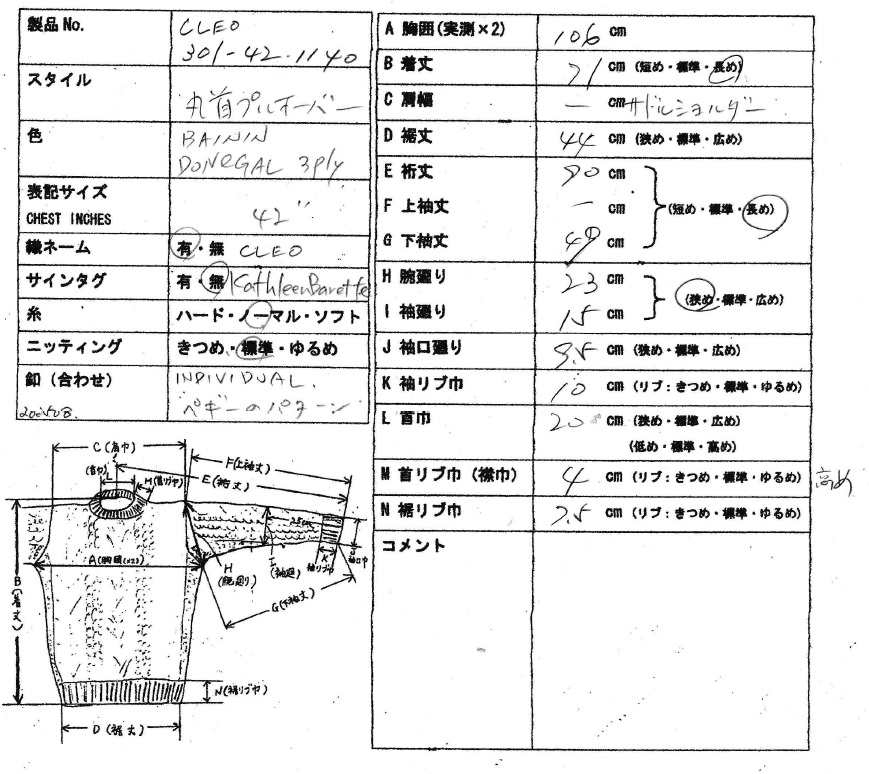 製品 No.
CLEO
301-42-1140
スタイル
丸首プルオーバー
色
BAININ
DONEGAL 3ply
表記サイズ
CHEST INCHES
42"
織ネーム
有・無 CLEO
サインタグ
有・無 Kathleen
糸
ハード・ノーマル・ソフト
ニッティング
きつめ・標準・ゆるめ
釦 (合わせ)
INDIVIDUAL.
ペギーのパターン
A 胸囲(実測×2)
106 cm
B 着丈
71 cm (短め・標準・長め)
C 肩幅
— cm サドルショルダー
D 裾丈
44 cm (狭め・標準・広め)
E 裄丈
90 cm
F 上袖丈
— cm (短め・標準・長め)
G 下袖丈
49 cm
H 腕廻り
23 cm
(狭め・標準・広め)
I 袖廻り
15 cm
J 袖口廻り
9.5 cm (狭め・標準・広め)
K 袖リブ巾
10 cm (リブ:きつめ・標準・ゆるめ)
L 首巾
20 cm (狭め・標準・広め)
(低め・標準・高め)
M 首リブ巾 (襟巾)
4 cm (リブ:きつめ・標準・ゆるめ) 高め
N 裾リブ巾
7.5 cm (リブ:きつめ・標準・ゆるめ)
コメント
C (肩巾)
F(上袖丈)
E(裄丈)
(首巾)
L
M(首リブ巾)
A(胸囲(×2))
B(着丈)
H
(腕廻り)
I
(袖廻)
K
袖リブ巾
J
袖口巾
G(下袖丈)
N(裾リブ巾)
D (裾丈)